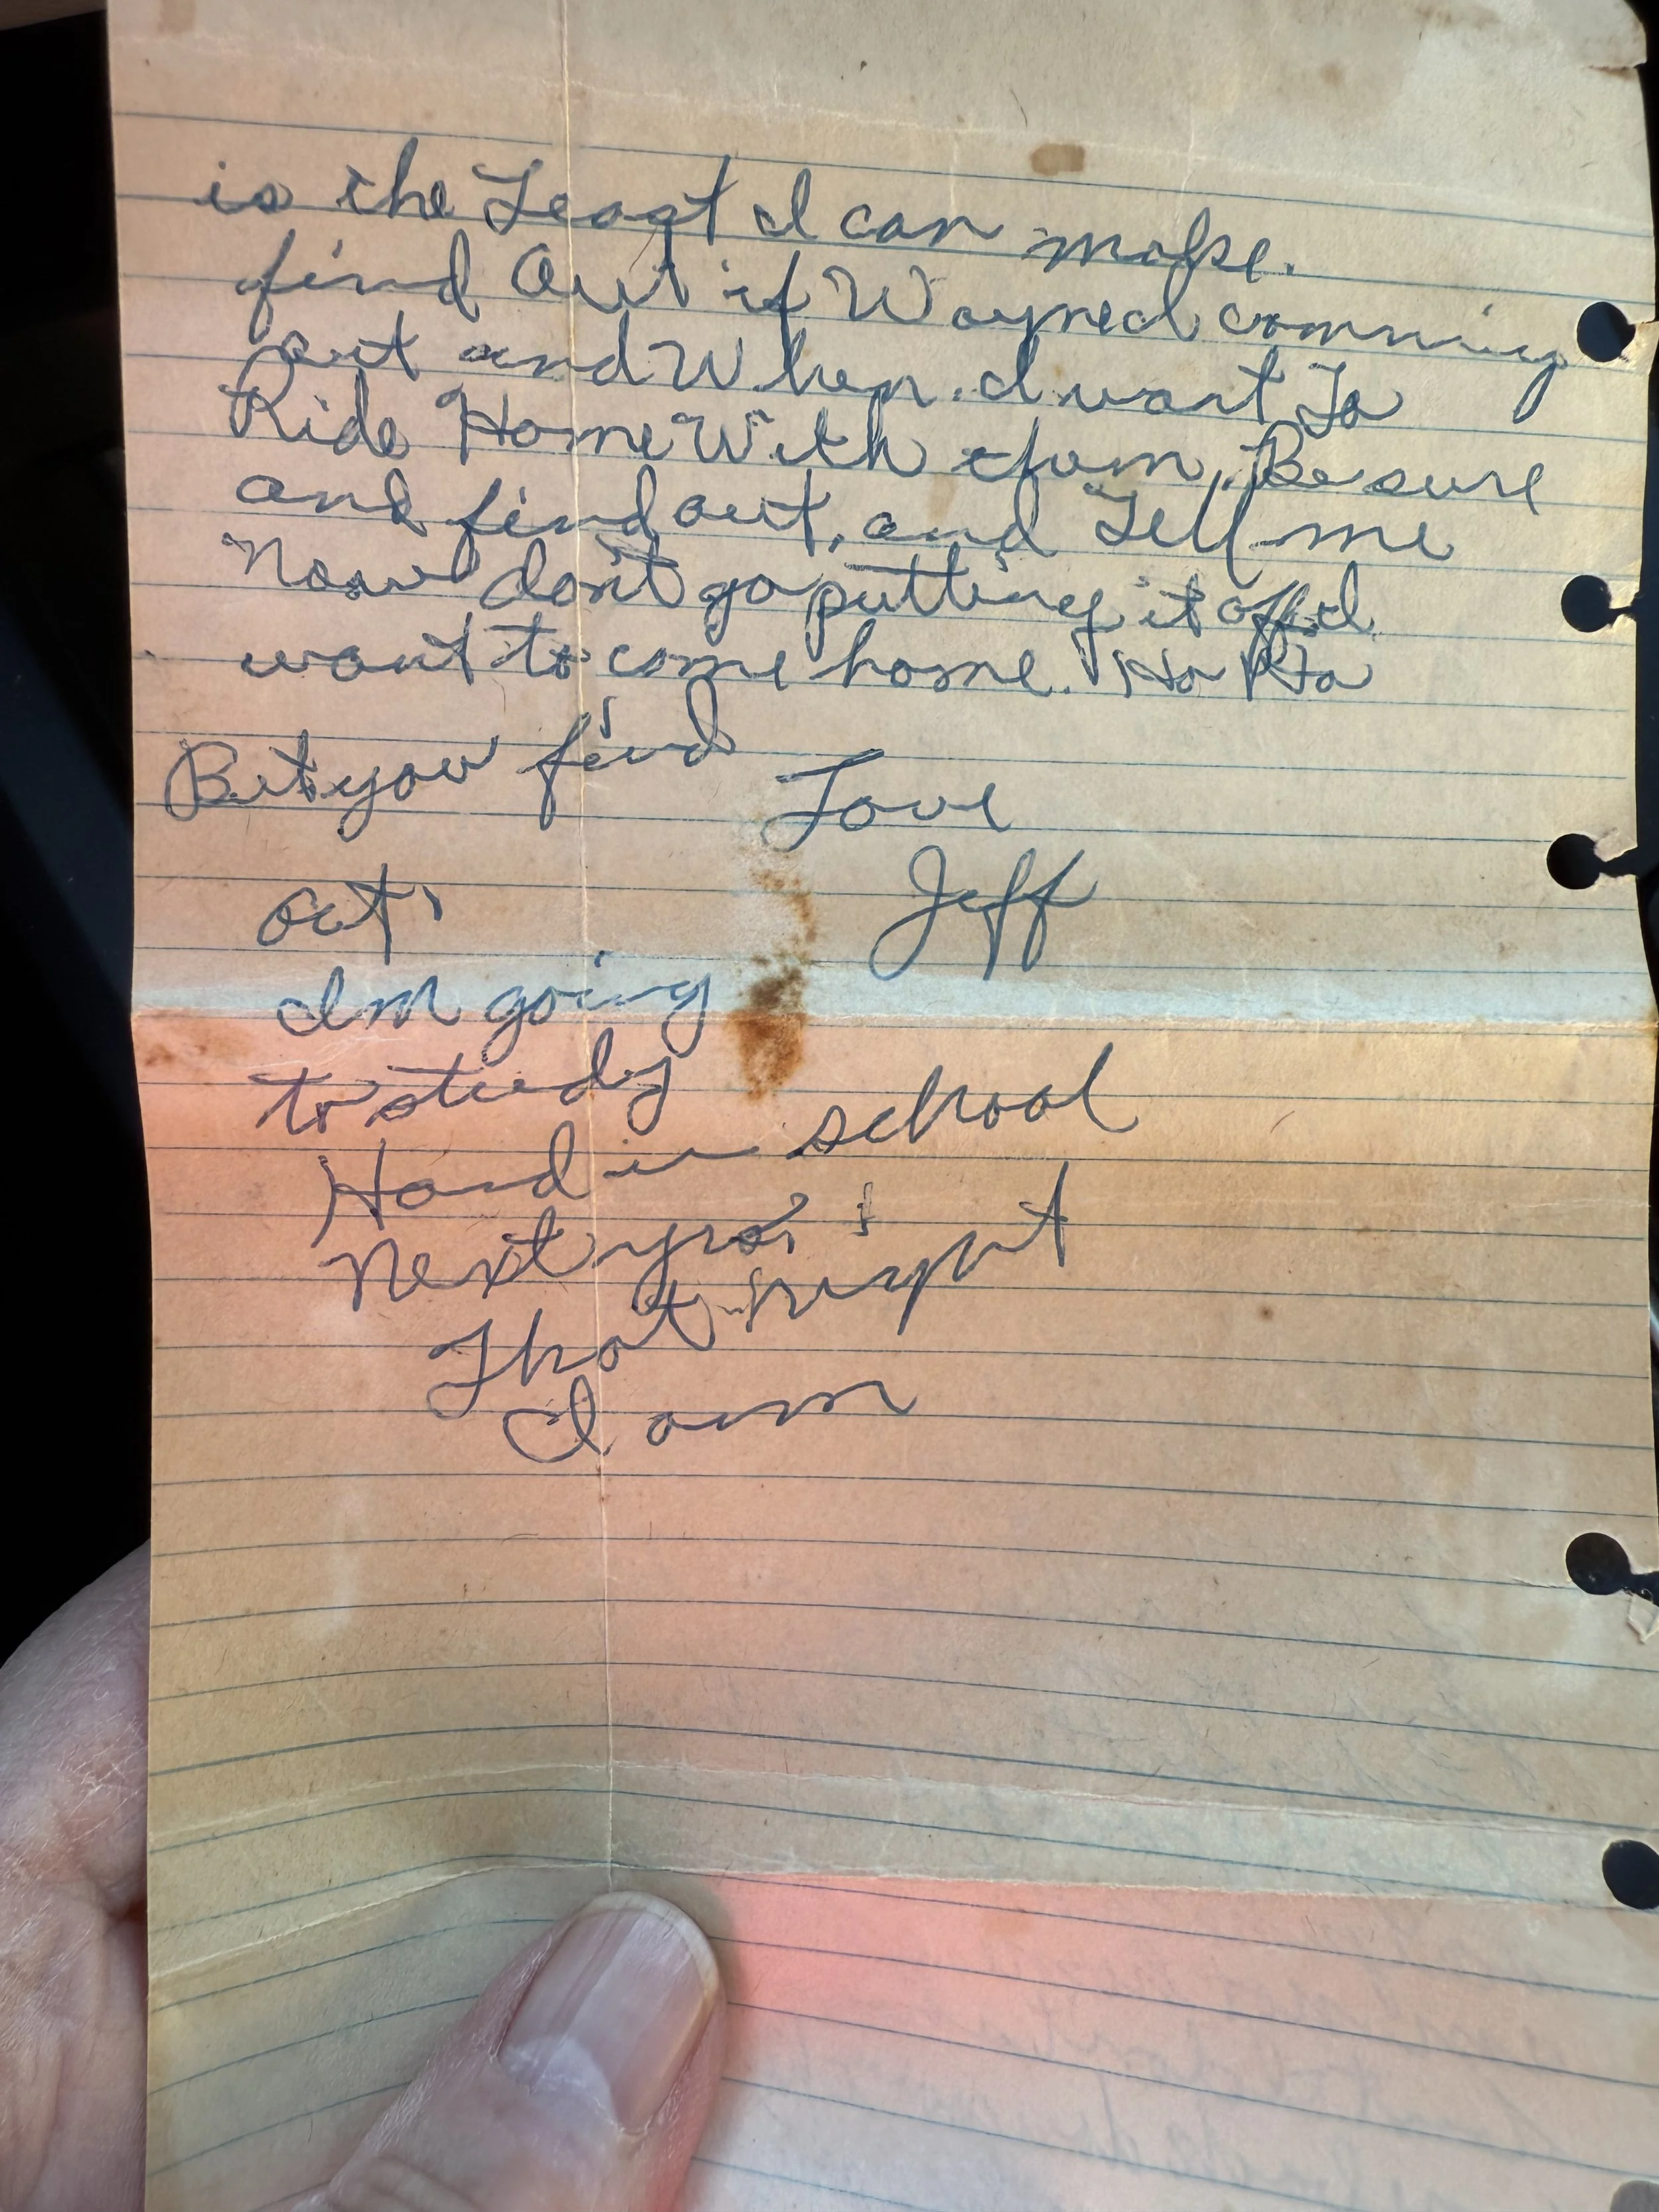 is the Least I can make.
find Out if Wayned comming
out and When. I want To
Ride Home With them. Be sure
and find out, and Tell me
Now don't go putting it off. I
want to come home. Ha Ha
But you find
Love
out,
Jeff
Im going
to study
Hard in school
Next yra,
That right
I am